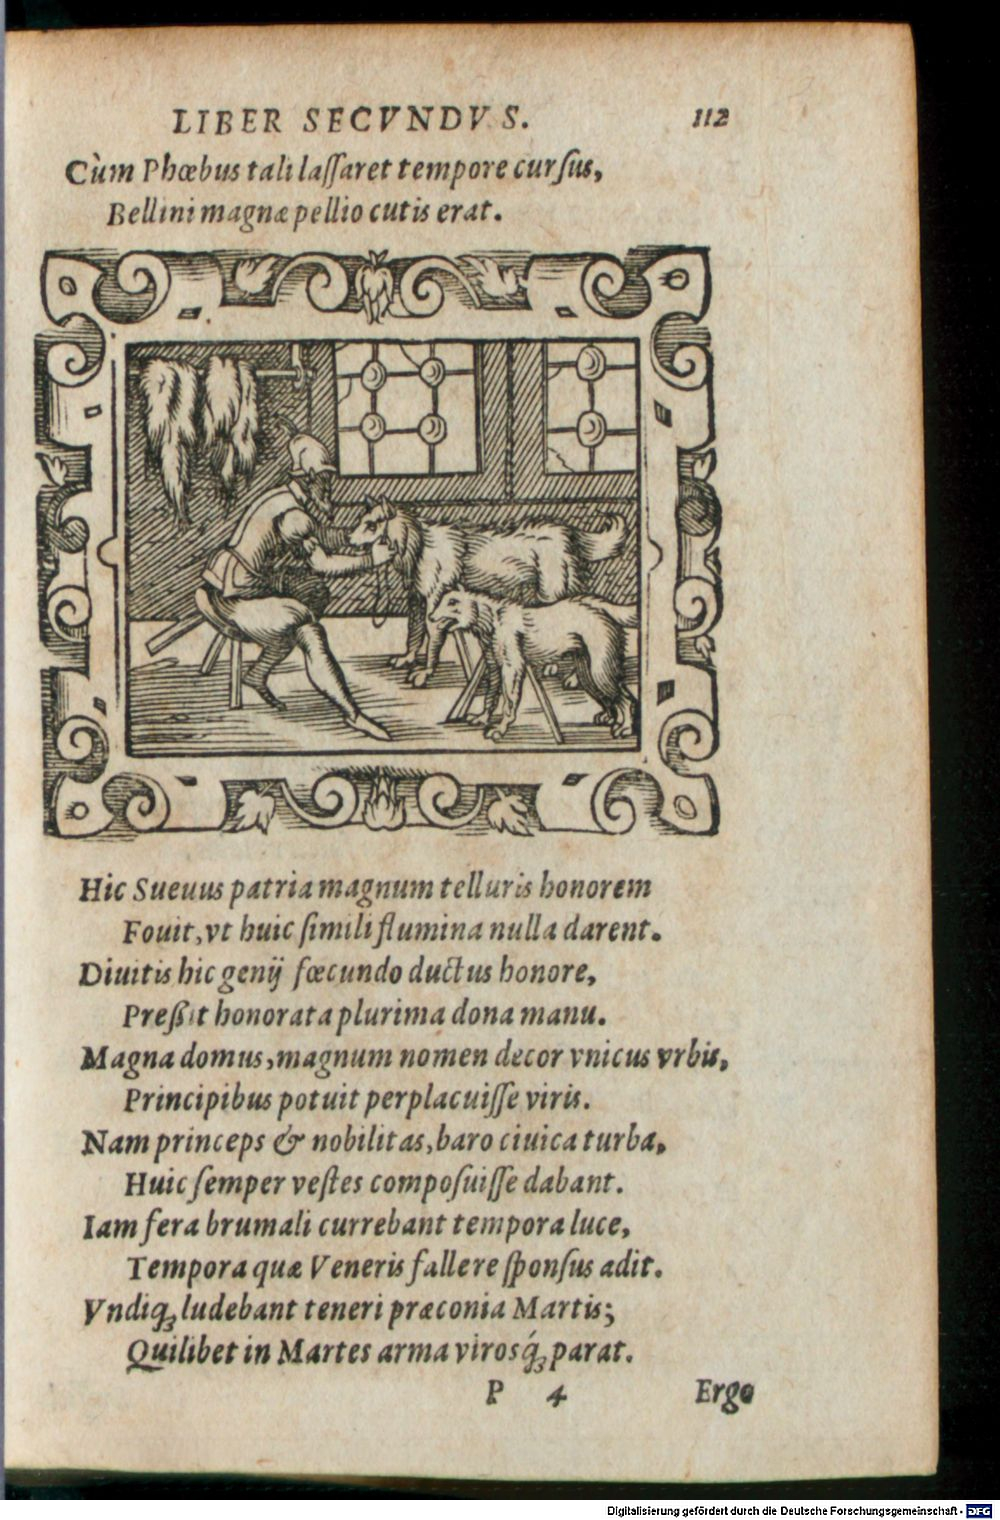 LIBER SECVNDVS. 112
Cùm Phœbus tali laſſaret tempore curſus,
Bellini magnæ pellio cutis erat.
Hic Sueuus patria magnum telluris honorem
Fouit, vt huic ſimili flumina nulla darent.
Diuitis hic genij fœcundo ductus honore,
Preßit honorata plurima dona manu.
Magna domus, magnum nomen decor vnicus vrbis,
Principibus potuit perplacuiſſe viris.
Nam princeps & nobilitas, baro ciuica turba,
Huic ſemper veſtes compoſuiſſe dabant.
Iam fera brumali currebant tempora luce,
Tempora quæ Veneris fallere ſponſus adit.
Vndiq; ludebant teneri præconia Martis;
Quilibet in Martes arma virosq́; parat.
P 4 Ergo
Digitalisierung gefördert durch die Deutsche Forschungsgemeinschaft - DFG